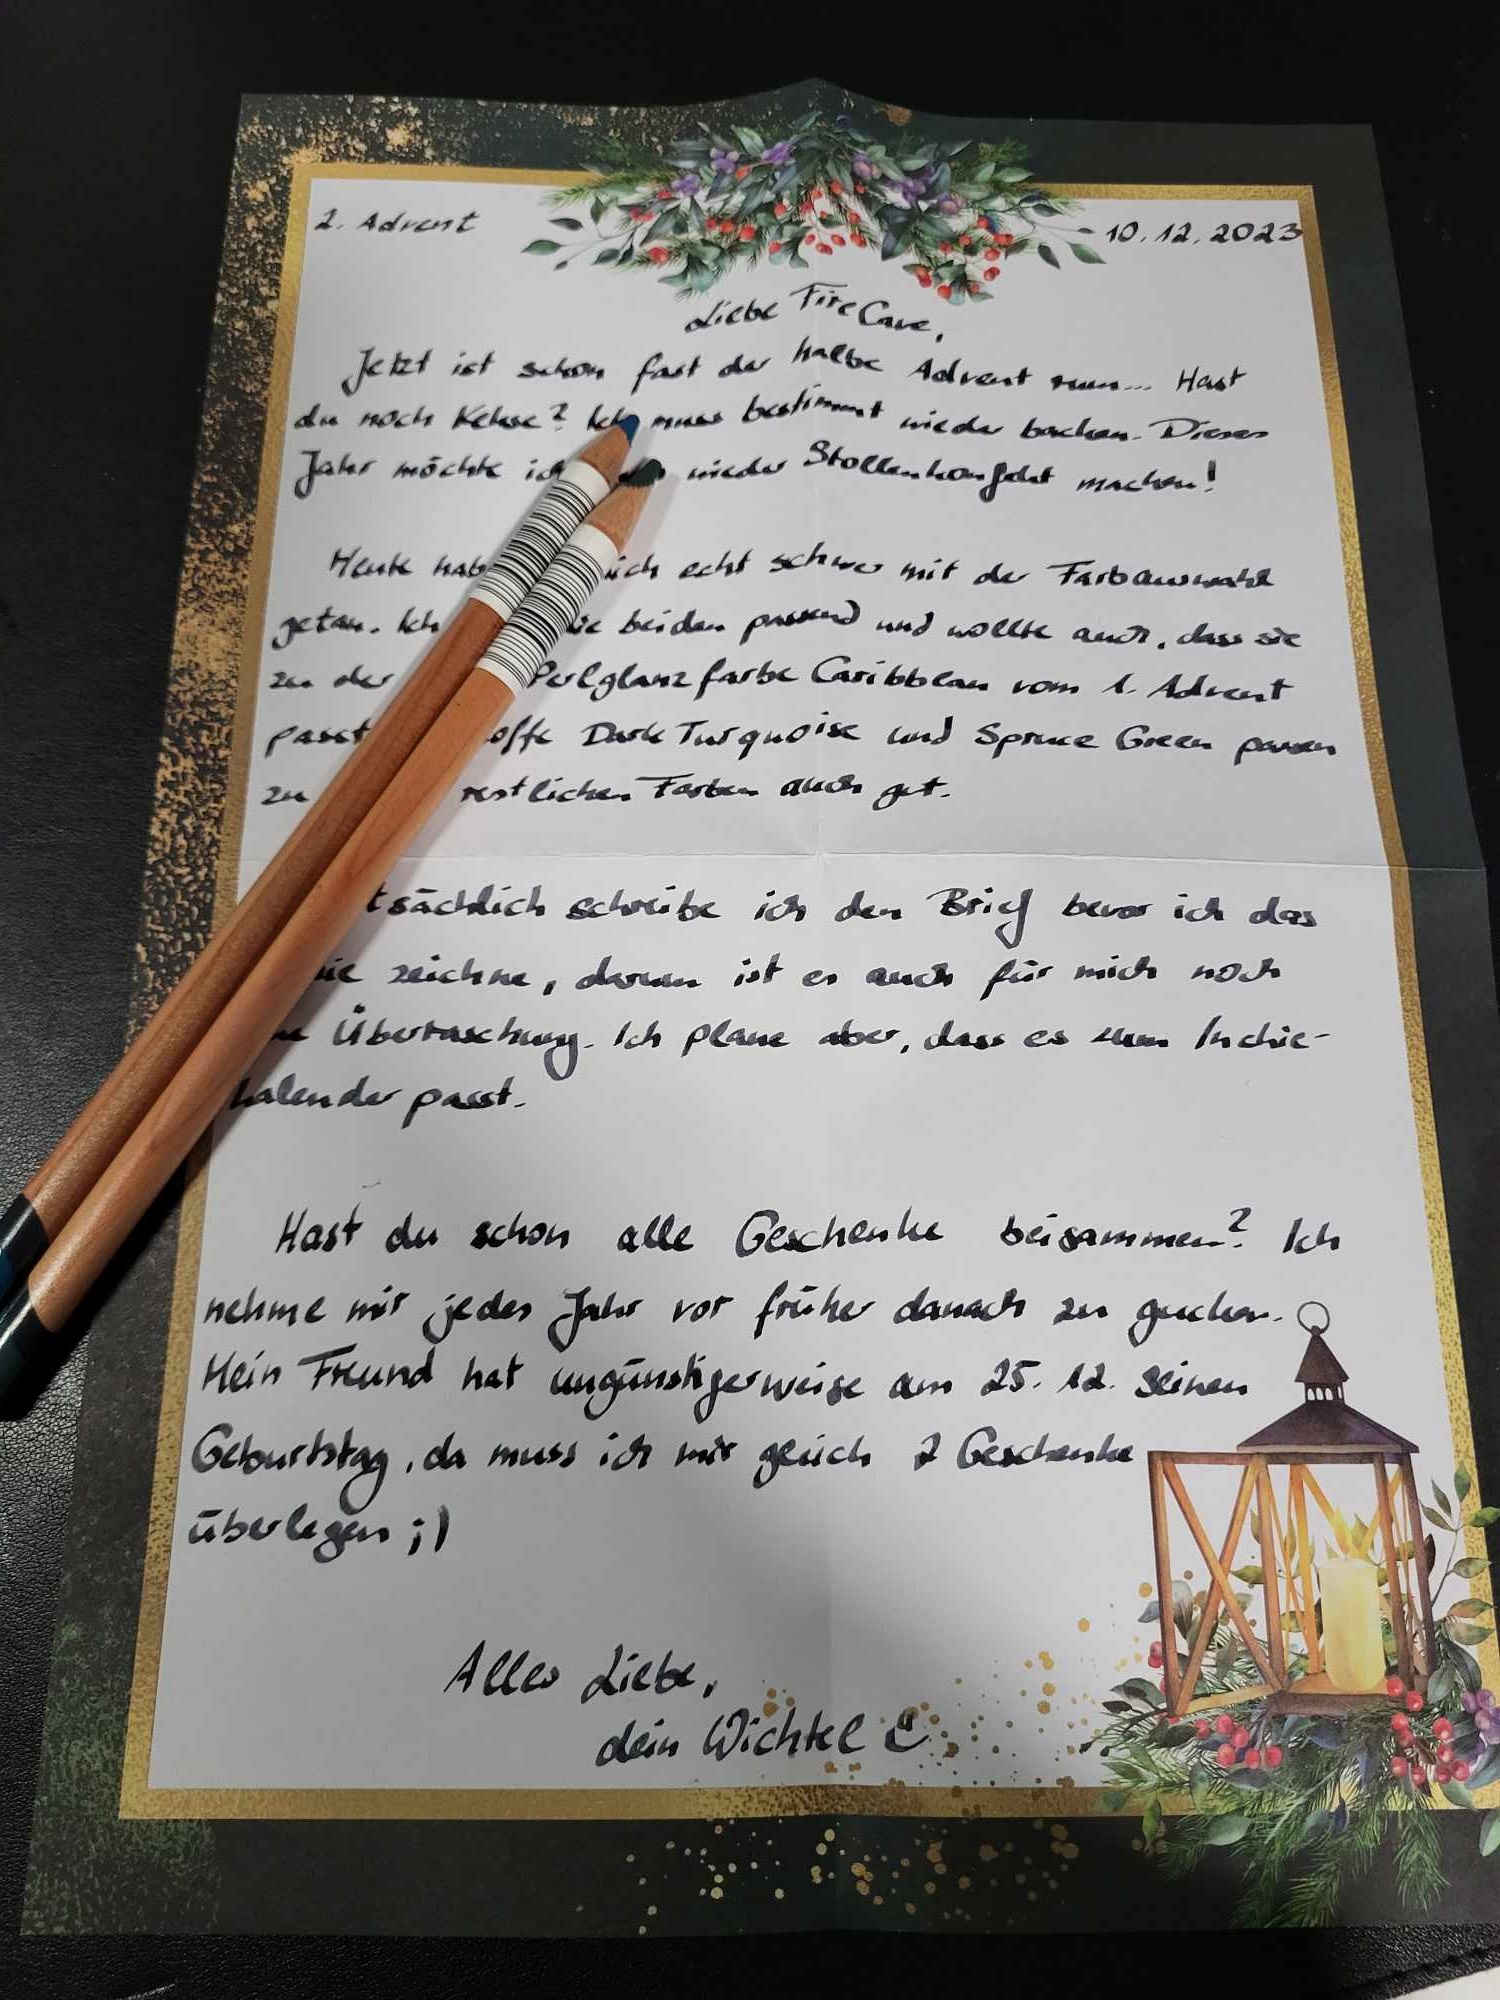 2. Advent
10.12.2023
Liebe FireCave,
Jetzt ist schon fast der halbe Advent rum... Hast
du noch Kekse? Ich muss bestimmt wieder backen. Dieses
Jahr möchte ich wieder Stollenkonfekt machen!
Heute hab ich echt schwer mit der Farbauswahl
getan. Ich beiden passend und wollte auch, dass sie
zu der Perlglanzfarbe Caribbean vom 1. Advent
passt Dark Turquoise und Spruce Green passen
zu restlichen Farben auch gut.
tsächlich schreibe ich den Brief bevor ich das
zeichne, darum ist es auch für mich noch
Überraschung. Ich plane aber, dass es zum Indie-
kalender passt.
Hast du schon alle Geschenke beisammen? Ich
nehme mir jedes Jahr vor früher danach zu gucken.
Mein Freund hat ungünstigerweise am 25.12. seinen
Geburtstag, da muss ich mir gleich 2 Geschenke
überlegen ;)
Alles Liebe,
dein Wichtel